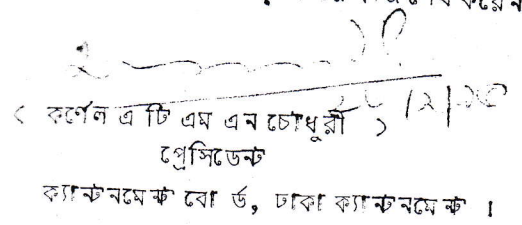 করেন
( কর্ণেল এ টি এম এ ন চৌধুরী )
প্রেসিডেন্ট
ক্যান্টনমেন্ট বোর্ড, ঢাকা ক্যান্টনমেন্ট ।